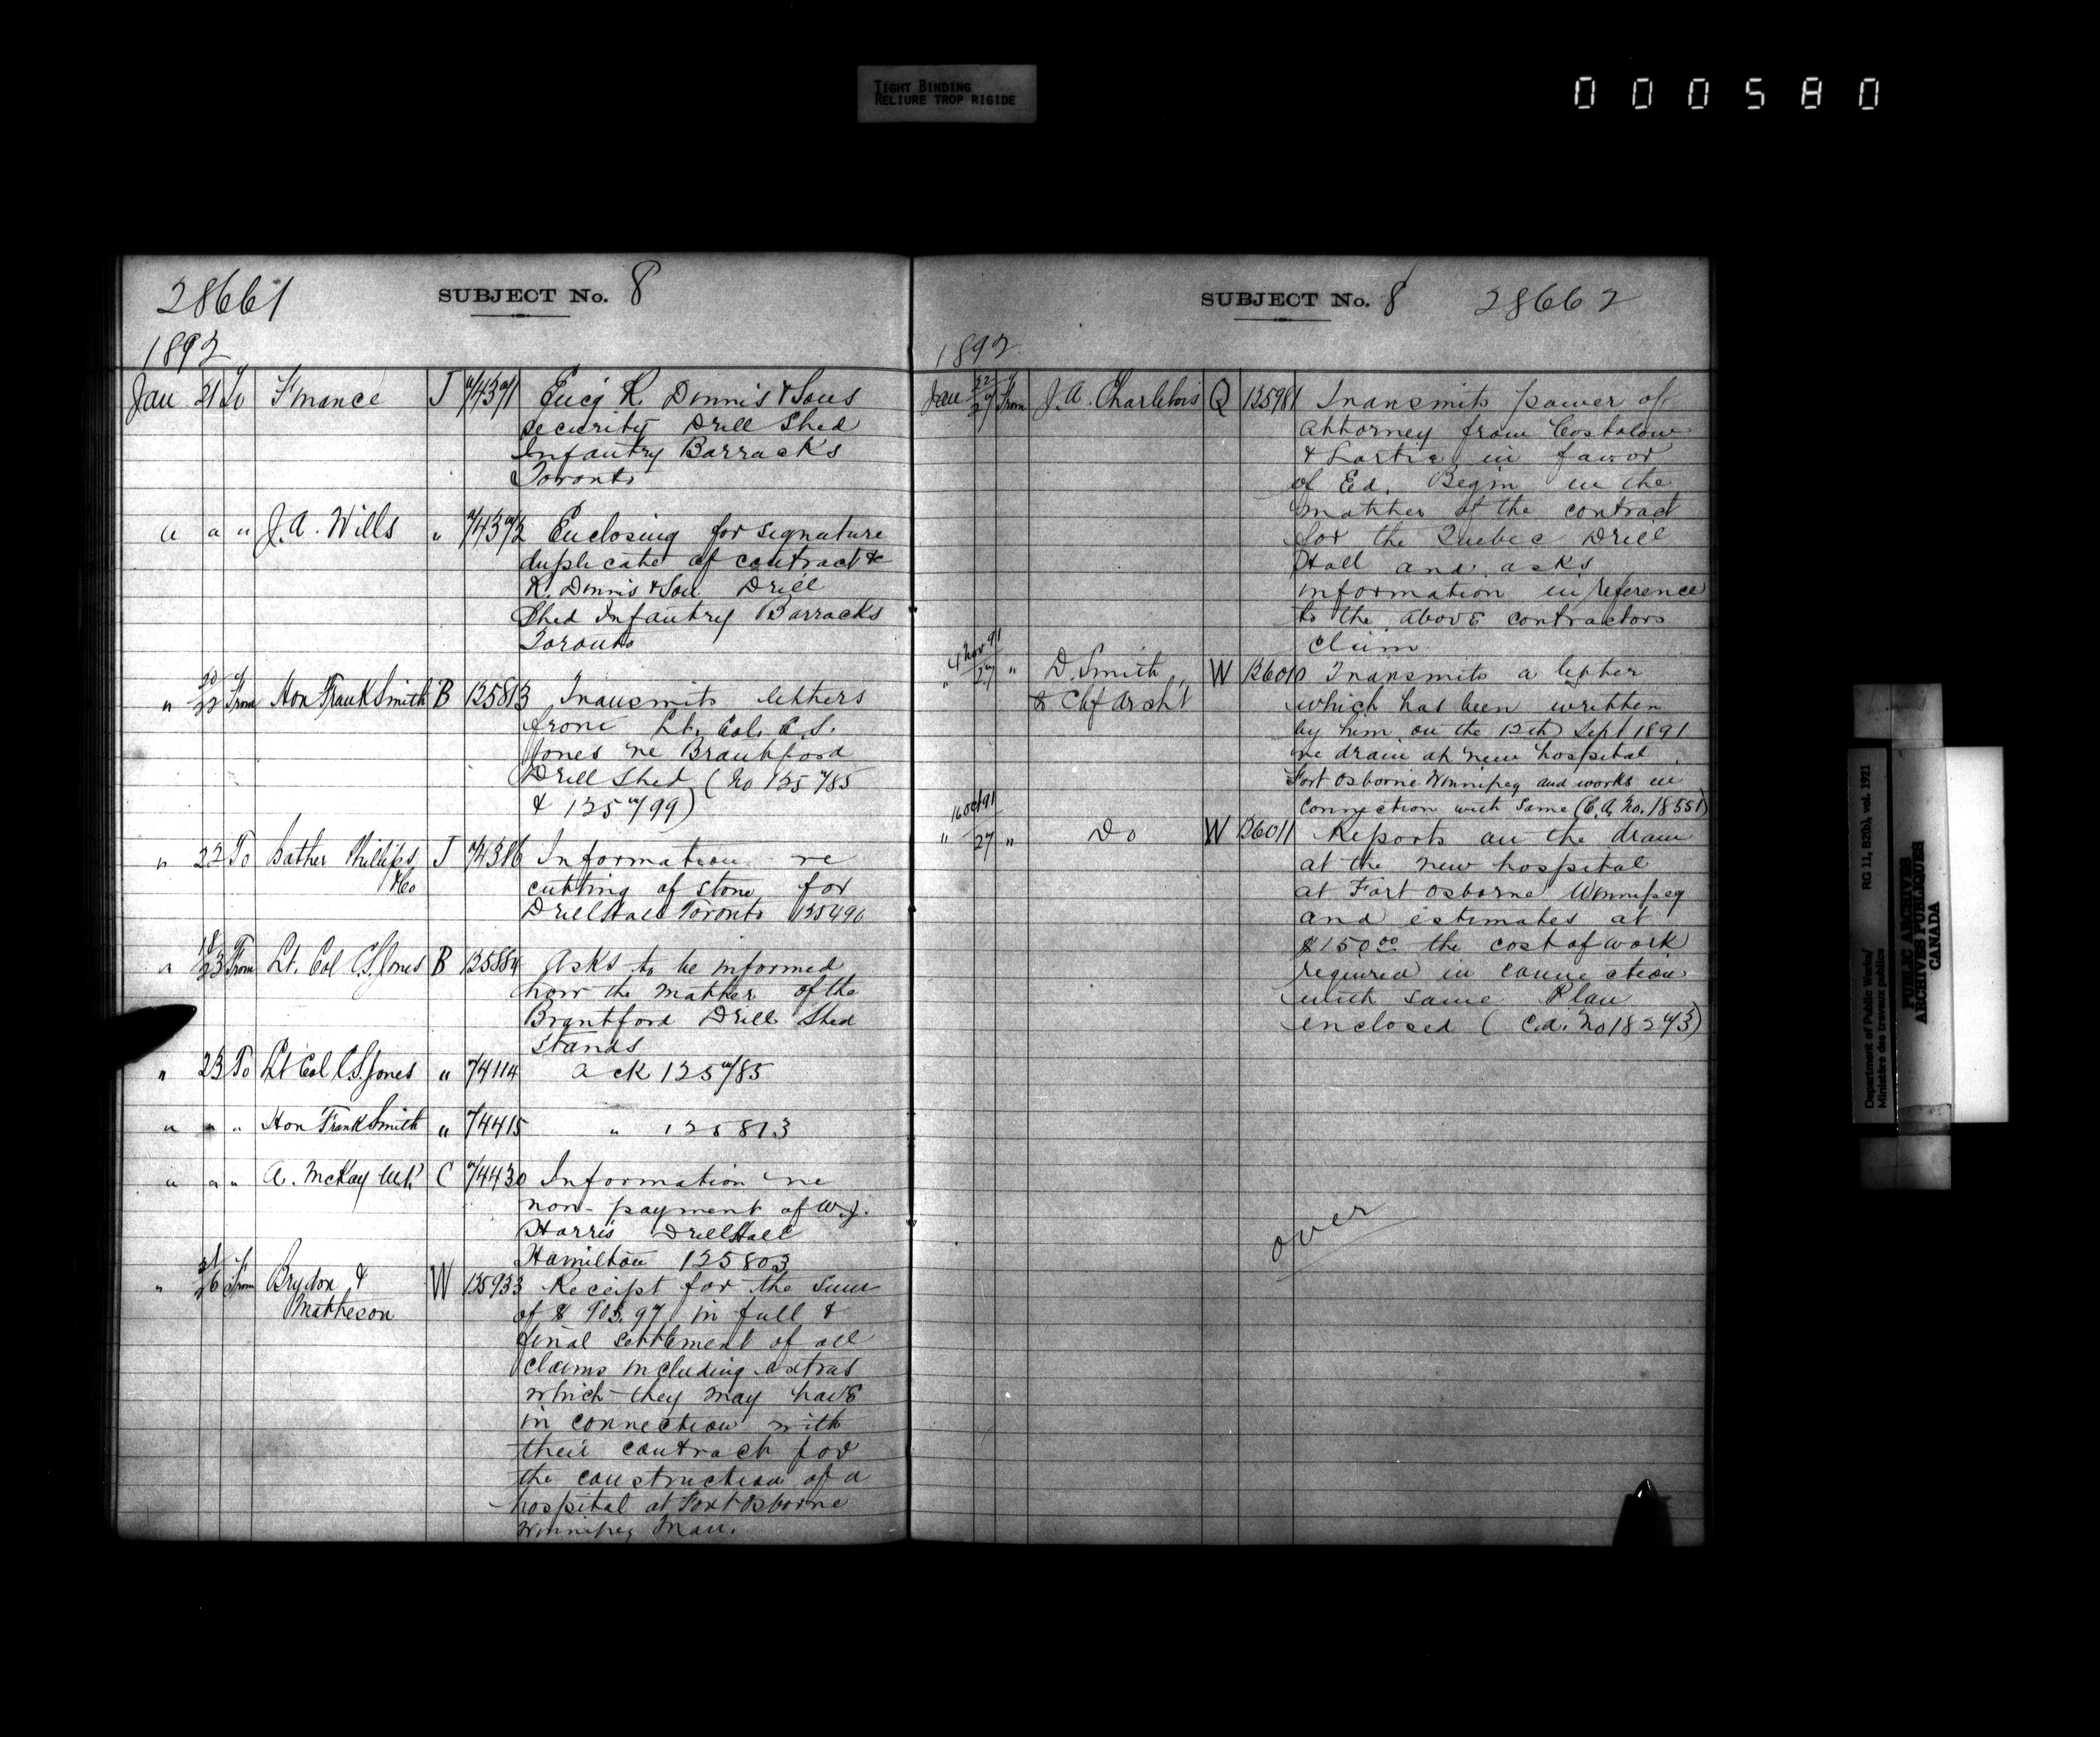 TIGHT BINDING
RELIURE TROP RIGIDE
000580
28661
SUBJECT No. 8
1892
Jan 21 To Finance T 74371 Encg R. Dinnis & Sons
security Drill Shed
Infantry Barracks
Toronto
" " " J. A. Wills " 74372 Enclosing for signature
duplicate of contract &
R. Dinnis & Son Drill
Shed Infantry Barracks
Toronto
" 20/22 From Hon Frank Smith B 125813 Transmits letters
from Lt. Col. C. S.
Jones re Brantford
Drill Shed (No 125785
& 125799)
" 22 To Bather Phillips T 74386 Information re
& Co
cutting of stone for
Drill Hall Toronto 125490
" 18/23 From Lt. Col C. S. Jones B 125884 Asks to be informed
how the matter of the
Brantford Drill Shed
stands
" 23 To Lt Col C. S. Jones " 74414 ack 125785
" " " Hon Frank Smith " 74415 " 125813
" " " A. McKay M.P. C 74430 Information re
non-payment of W. J.
Harris Drill Hall
Hamilton 125803
" 21/26 From Brydon & W 125933 Receipt for the sum
Matheson
of $ 903.97 in full &
final settlement of all
claims including extras
which they may have
in connection with
their contract for
the construction of a
hospital at Fort Osborne
Winnipeg Man.
SUBJECT No. 8
28662
1892
Jan 22/27 From J. A. Charlebois Q 125981 Transmits power of
attorney from
& Lortie in favor
of Ed. Begin in the
matter of the contract
for the Quebec Drill
Hall and asks
information in reference
to the above contractors
claim
4 Nov 91
" 27 " D. Smith, W 126010 Transmits a letter
& Chf Archt
which has been written
by him on the 12th Sept 1891
re drain at new hospital
Fort Osborne Winnipeg and works in
connection with same (C.A. No. 18551)
16 Oct 91
" 27 " Do W 126011 Reports on the drain
at the new hospital
at Fort Osborne Winnipeg
and estimates at
$150.00 the cost of work
required in connection
with same Plan
enclosed (C.A. No 18273)
over
Department of Public Works/ RG 11, B2(b), vol. 1921
Ministère des travaux publics
PUBLIC ARCHIVES
ARCHIVES PUBLIQUES
CANADA